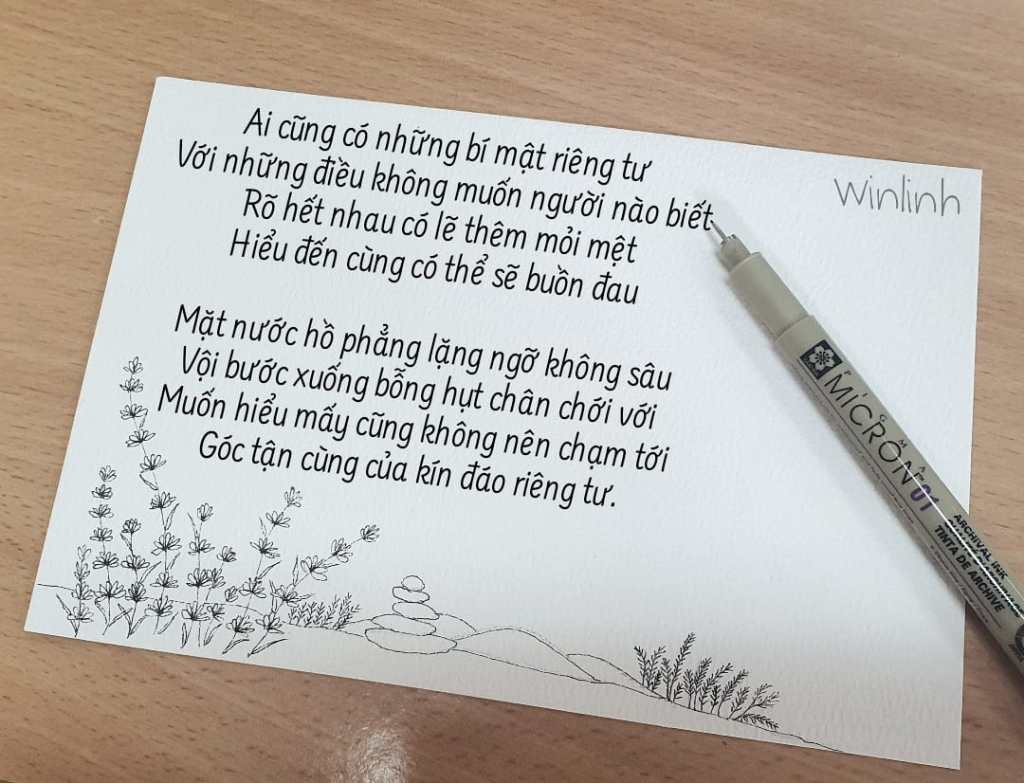 Ai cũng có những bí mật riêng tư
Với những điều không muốn người nào biết
Rõ hết nhau có lẽ thêm mỏi mệt
Hiểu đến cùng có thể sẽ buồn đau
Mặt nước hồ phẳng lặng ngỡ không sâu
Vội bước xuống bỗng hụt chân chới với
Muốn hiểu mấy cũng không nên chạm tới
Góc tận cùng của kín đáo riêng tư.
Winlinh
MICRON 01
ARCHIVAL INK
TINTA DE ARCHIVE